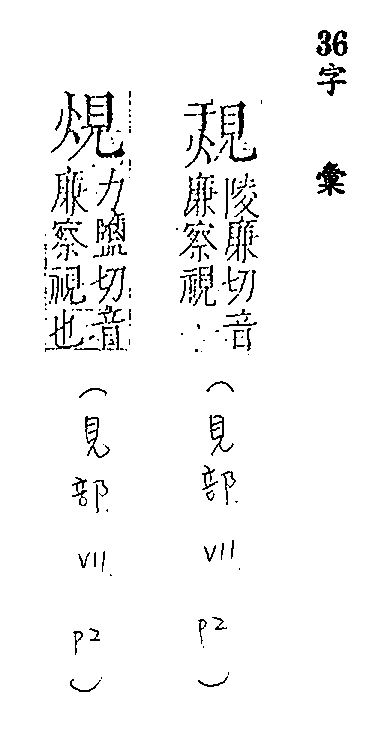 36字 彙
覝
陵廉切音
廉察視
(見部 VII p2)
力鹽切音
廉察視也
(見部 VII p2)